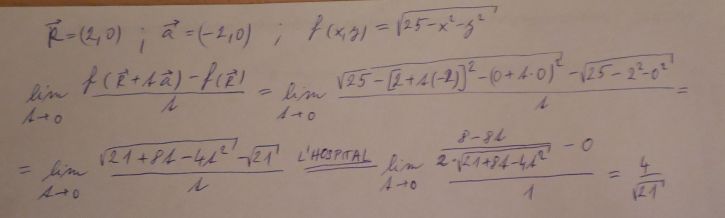 R⃗=(2,0) ; a⃗=(-2,0) ; f(x,y)=√(25-x²-y²)
lim_{λ→0} (f(R⃗+λa⃗)-f(R⃗))/λ = lim_{λ→0} (√(25-[2+λ(-2)]²-(0+λ·0)²)-√(25-2²-0²))/λ =
= lim_{λ→0} (√(21+8λ-4λ²)-√21)/λ L'HOSPITAL lim_{λ→0} ((8-8λ)/(2·√(21+8λ-4λ²))-0)/1 = 4/√21